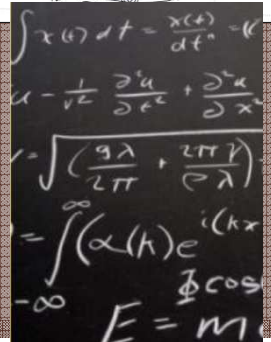 ∫ x(t) dt = x(t) / dtⁿ = (
u - 1/v² ∂²u/∂t² + ∂²u/∂x²
= √( ( gλ/2π + 2πγ/ρλ )
= ∫_{-∞}^{∞} (α(k) e^{i(kx
Φ cos
E = m